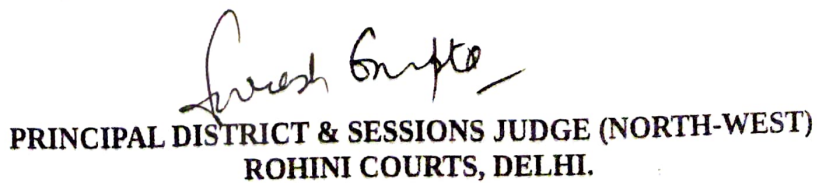 Suresh Gupta
PRINCIPAL DISTRICT & SESSIONS JUDGE (NORTH-WEST)
ROHINI COURTS, DELHI.